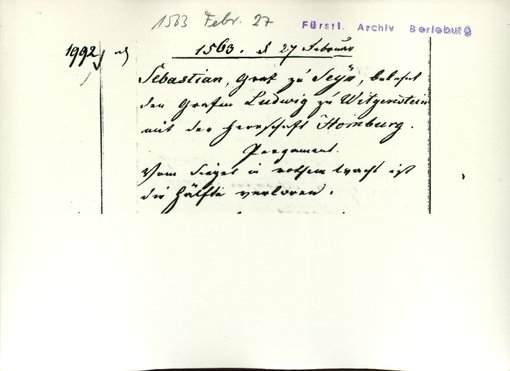 1563 Febr. 27
Fürstl. Archiv Berleburg
1992
1563. d 27 Februar
Sebastian, Graf zu Seÿn, belehnt
den Grafen Ludwig zu Witgenstein
mit der Herrschaft Homburg.
Pergament.
Vom Siegel in rothem Wachs ist
die Hälfte verloren.